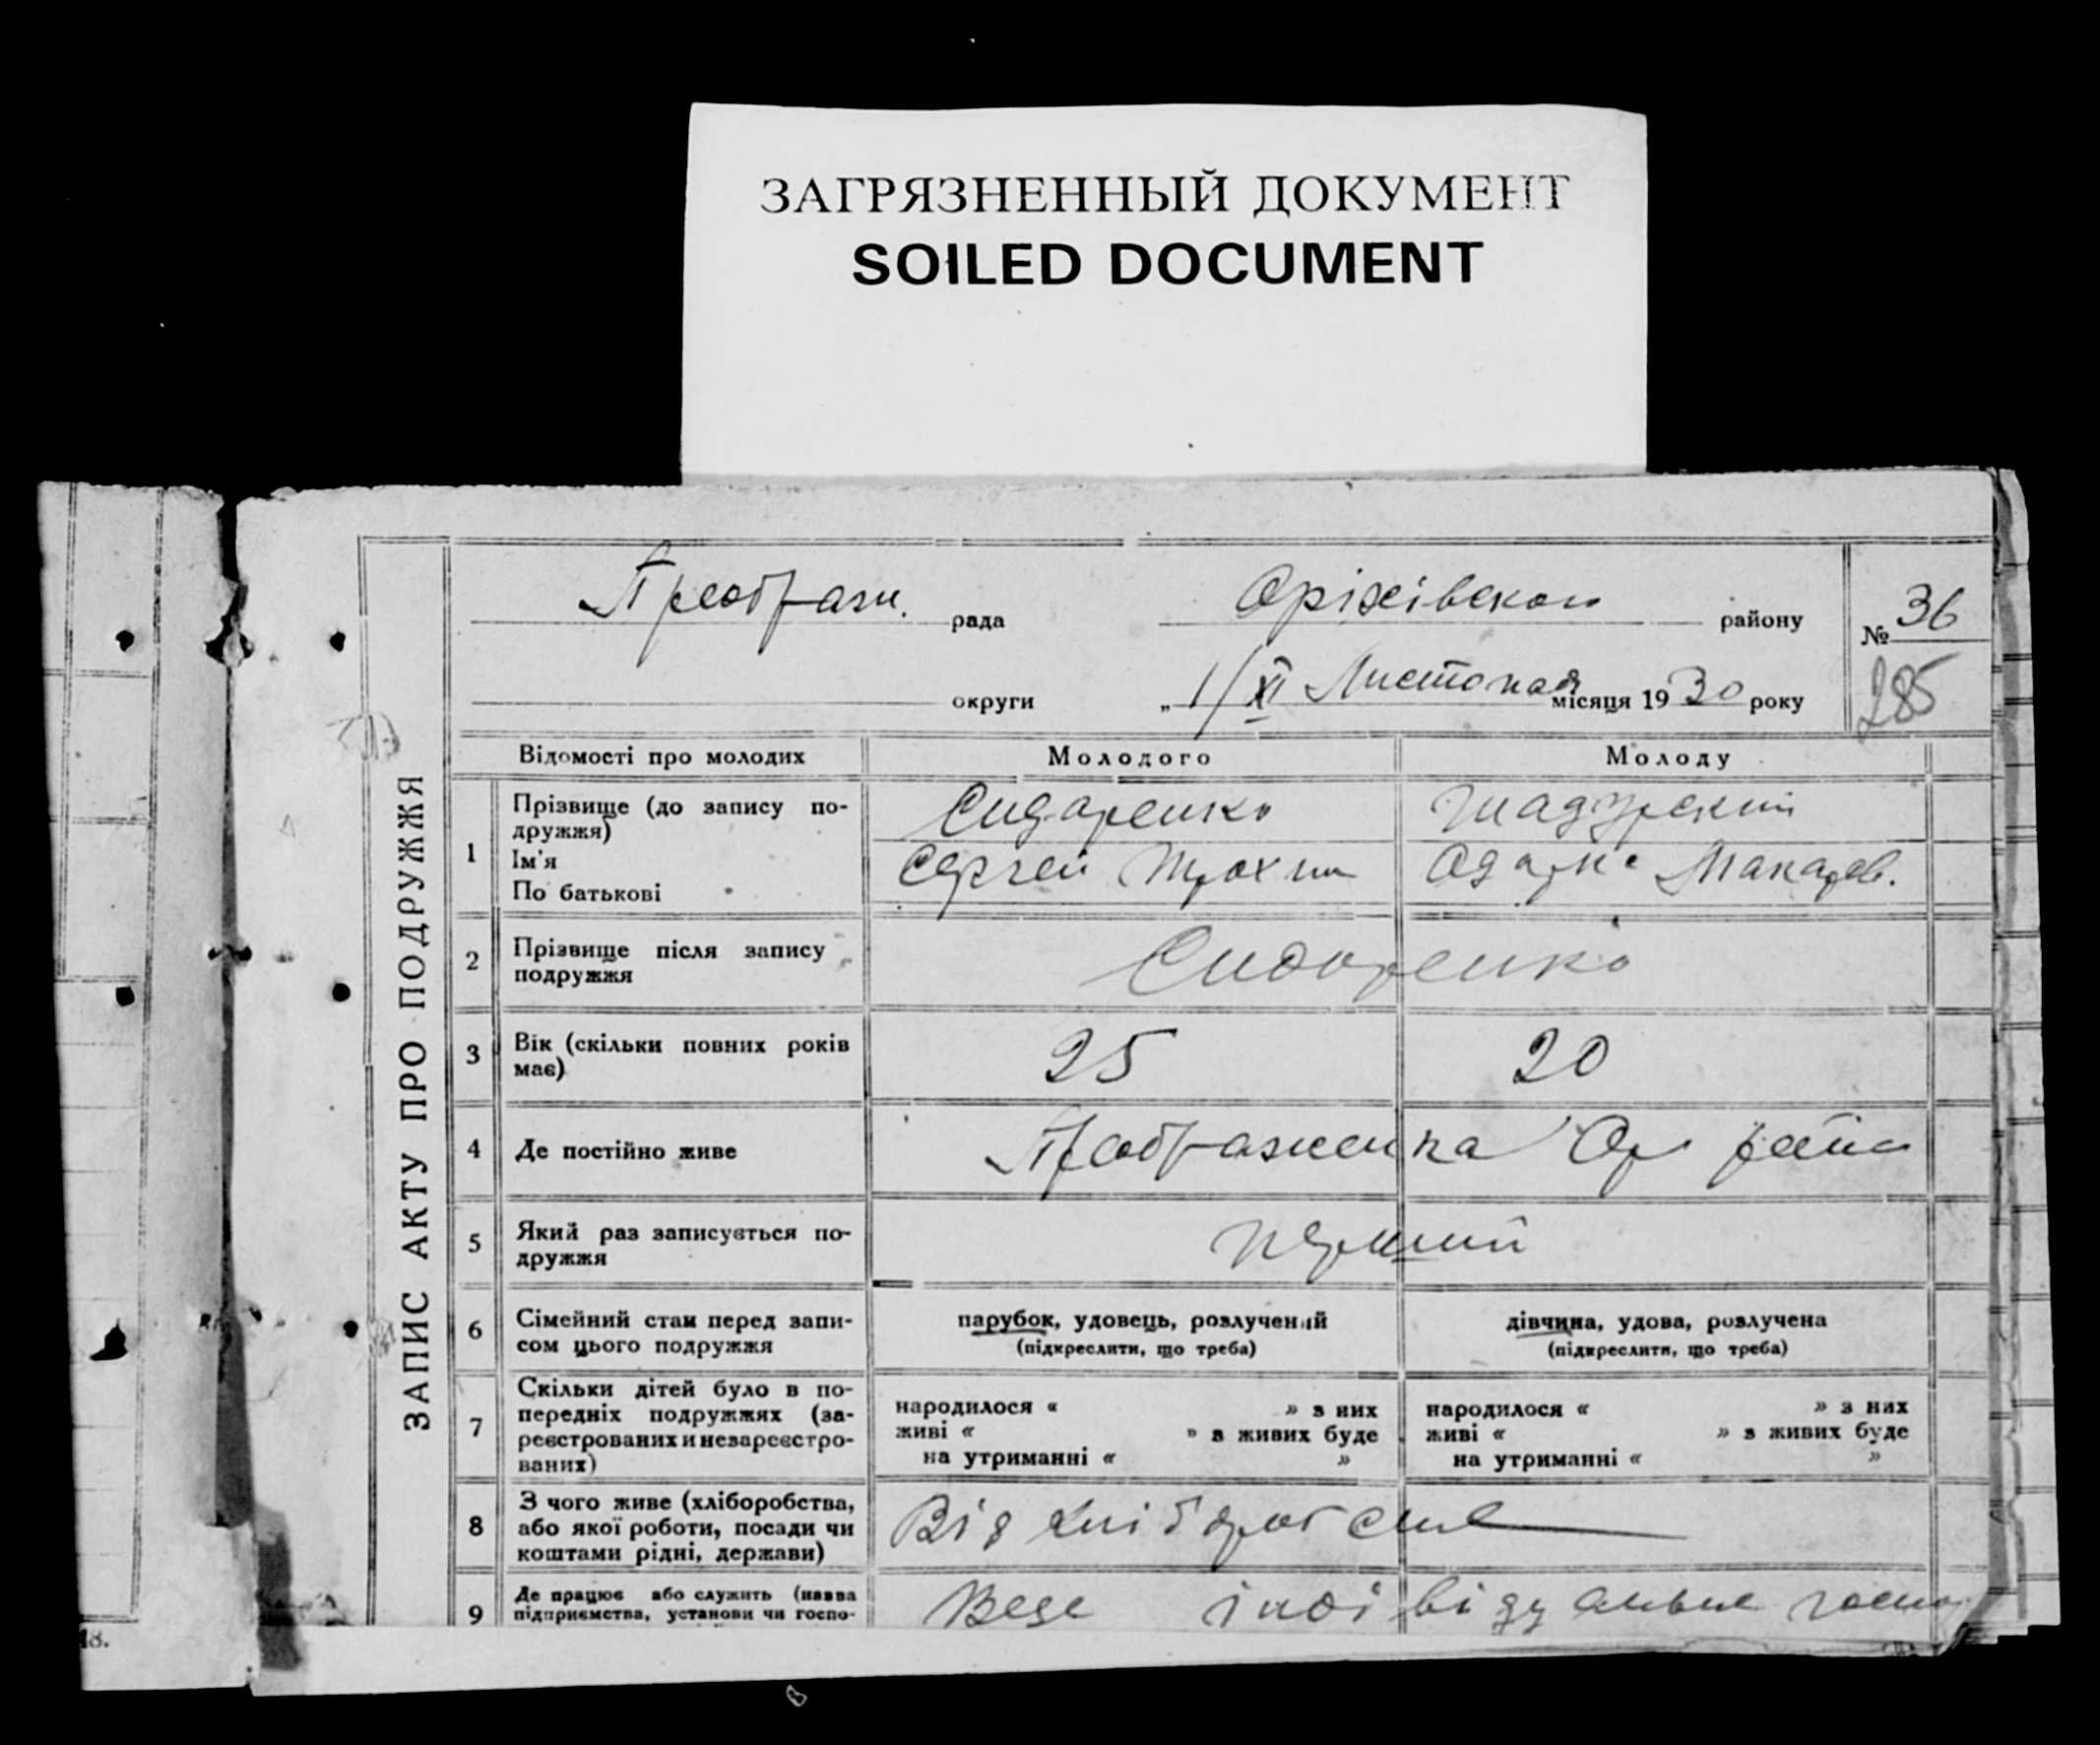 ЗАГРЯЗНЕННЫЙ ДОКУМЕНТ
SOILED DOCUMENT
Преображ. рада Оріхівського району № 36
округи „ 1/XI Листопад місяця 1930 року 285
ЗАПИС АКТУ ПРО ПОДРУЖЖЯ
Відомості про молодих Молодого Молоду
1 Прізвище (до запису по-
дружжя) Сидаренко
Ім'я
По батькові Сергей Трохим Одарка Макаров.
2 Прізвище після запису
подружжя Сидоренко
3 Вік (скільки повних років
має) 25 20
4 Де постійно живе Преображенка Ор району
5 Який раз записується по-
дружжя перший
6 Сімейний стан перед запи-
сом цього подружжя парубок, удовець, розлучений дівчина, удова, розлучена
(підкреслити, що треба) (підкреслити, що треба)
7 Скільки дітей було в по-
передніх подружжях (за-
реєстрованих и незареєстро-
ваних)
народилося « » з них народилося « » з них
живі « » з живих буде живі « » з живих буде
на утриманні « » на утриманні « »
8 З чого живе (хліборобства,
або якої роботи, посади чи
коштами рідні, держави) Від
9 Де працює або служить (назва
підприємства, установи чи госпо- Веде індівідуальне госпо
18.